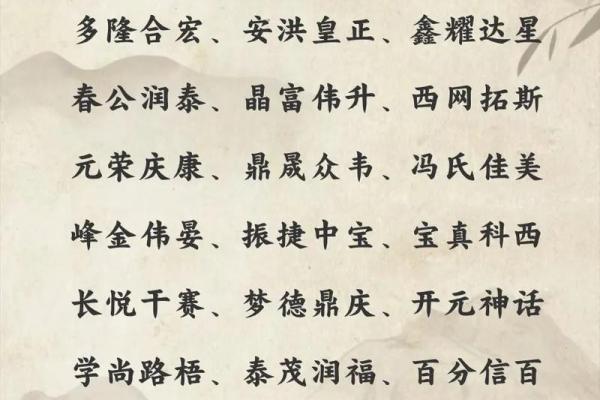 多隆合宏、安洪皇正、鑫耀达星
春公润泰、晶富伟升、西网拓斯
元荣庆康、鼎晟众韦、冯氏佳美
峰金伟晏、振捷中宝、宝真科西
长悦干赛、梦德鼎庆、开元神话
学尚路梧、泰茂润福、百分信百